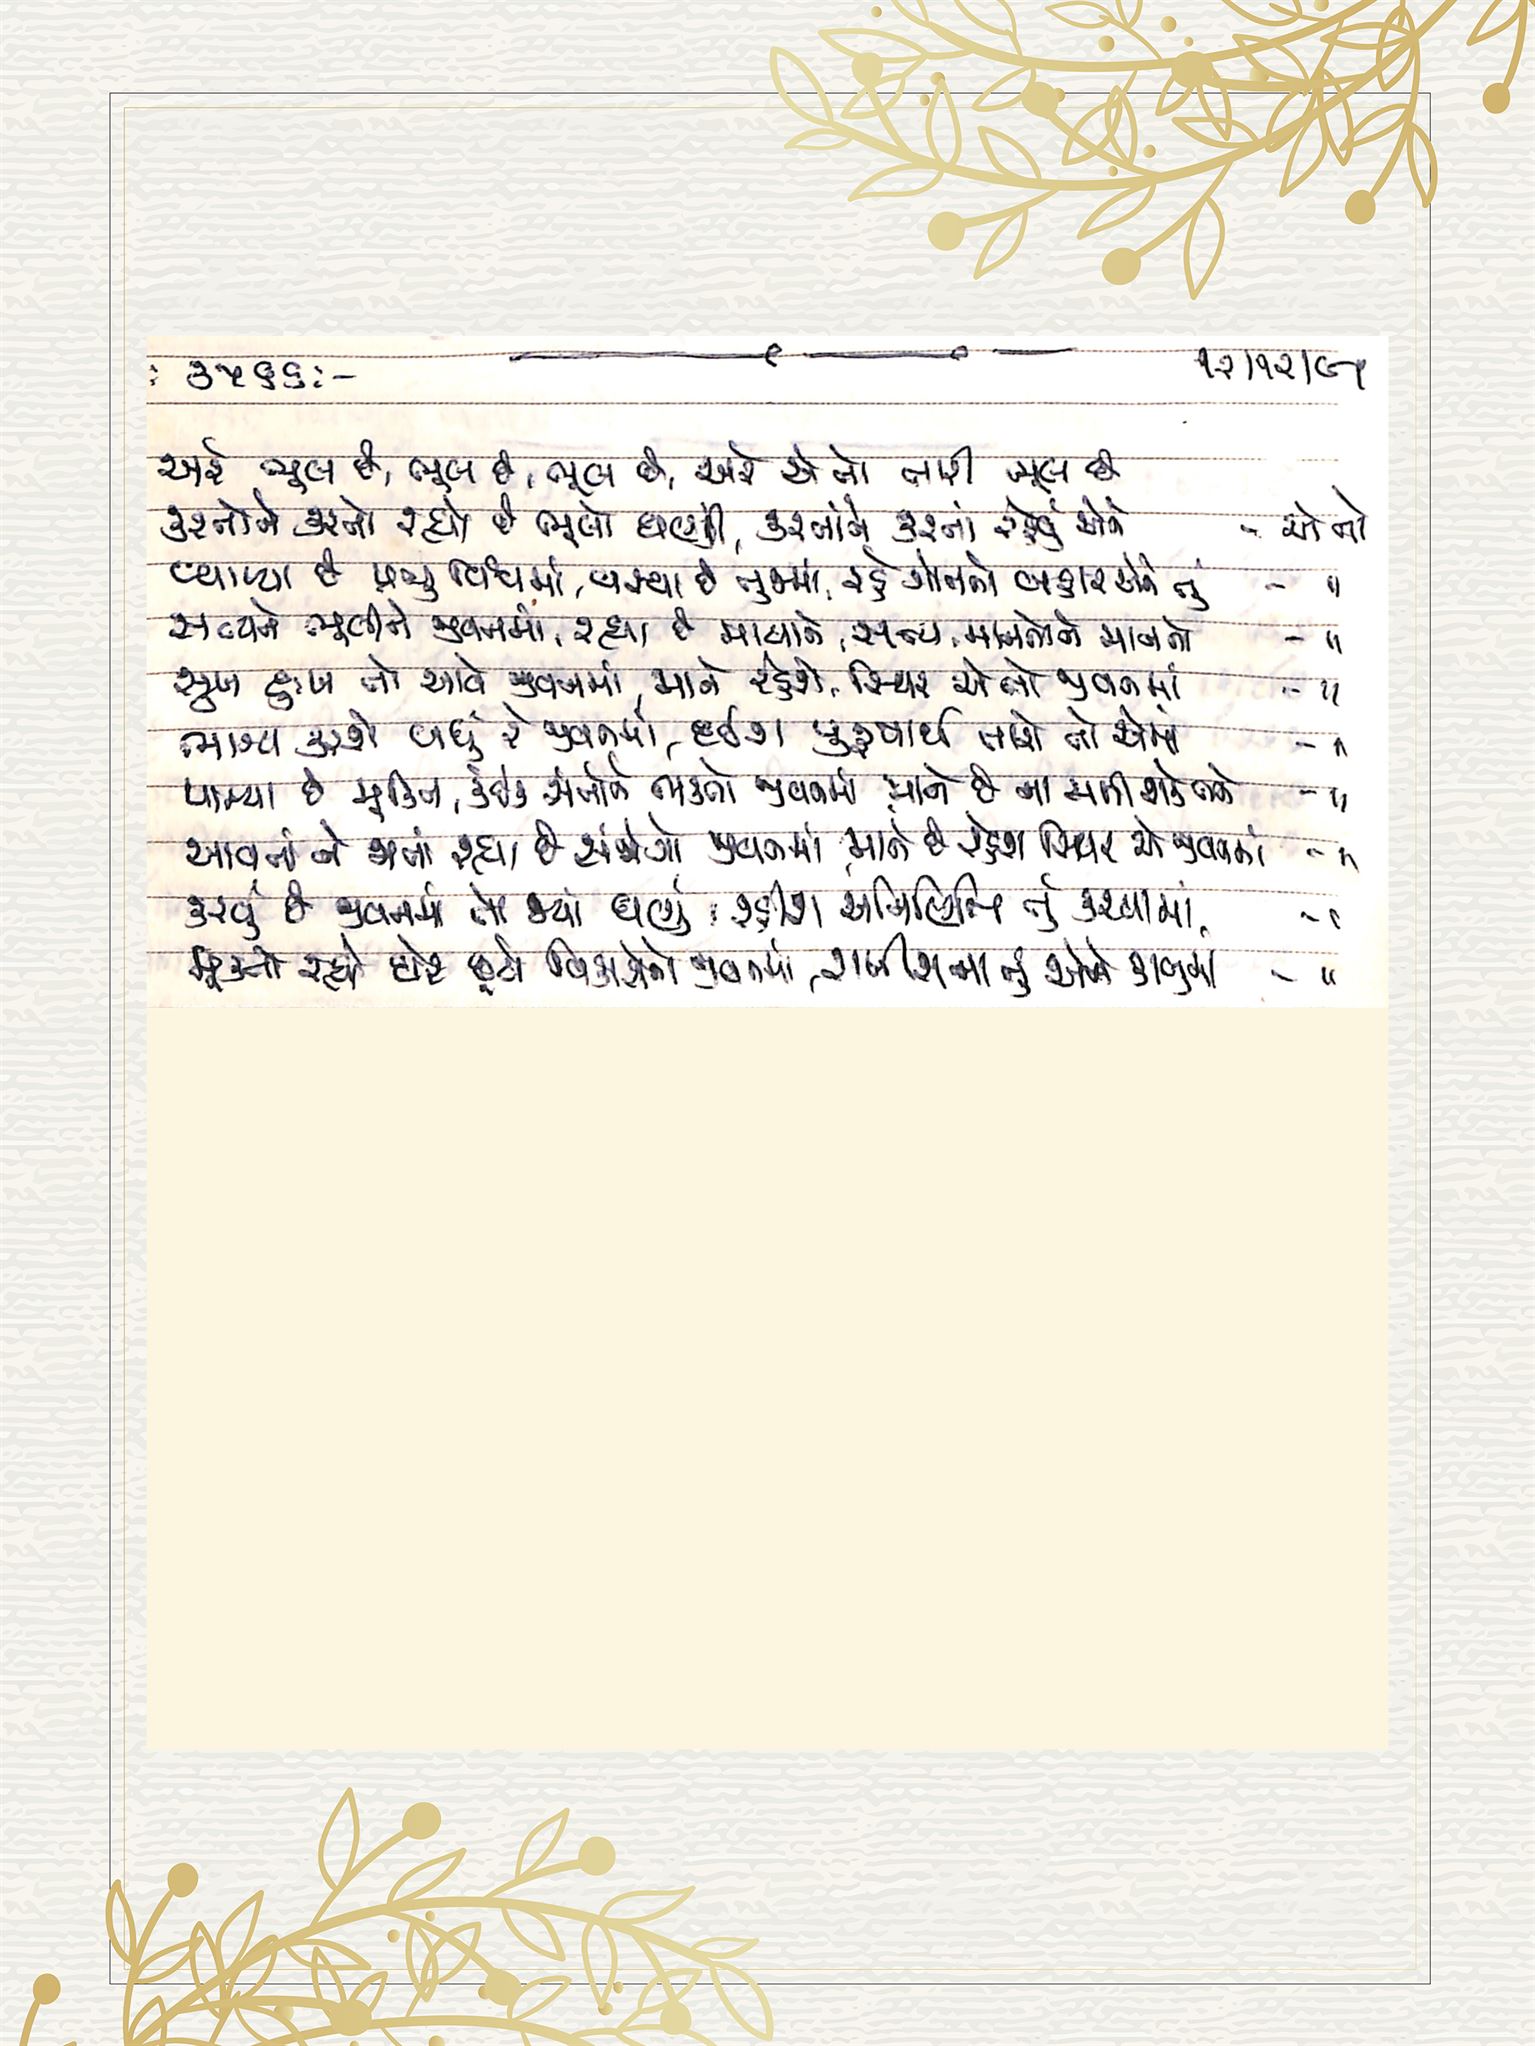 : ૩૫૬૬:- ૧૨/૧૨/૯૧
અરે ભૂલ છે, ભૂલ છે, ભૂલ છે, અરે એ તો તારી ભૂલ છે
કરતોને કરતો રહ્યો છે ભૂલો ઘણી, કરતાંને કરતાં રહેવું એને - એ તો
વ્યાપ્યા છે પ્રભુ વિશ્વમાં, વસ્યા છે તુજમાં, રહે ગોતતો બહાર એને તું - "
સત્યને ભૂલીને જીવનમાં, રહ્યા છે માયાને, સત્ય માનતોને માનતો - "
સુખ દુઃખ તો આવે જીવનમાં, માને રહેશે, સ્થિર એ તો જીવનમાં - "
ભાગ્ય કરશે બધું રે જીવનમાં, હઈશ પુરુષાર્થ તારો તો એમાં - "
પામ્યા છે મુક્તિ, કંઈક સંતોને ભક્તો જીવનમાં માને છે ના મળી શકે તને - "
આવતાં ને જાતાં રહ્યા છે સંજોગો જીવનમાં, માને છે રહેશે સ્થિર એ જીવનમાં - "
કરવું છે જીવનમાં તો જ્યાં ઘણું રહીશ અનિશ્ચિત તું કરવામાં, - "
મૂકતો રહ્યો દોર છૂટો વિકારોનો જીવનમાં, રાખીશ ના તું એને કાબુમાં - "